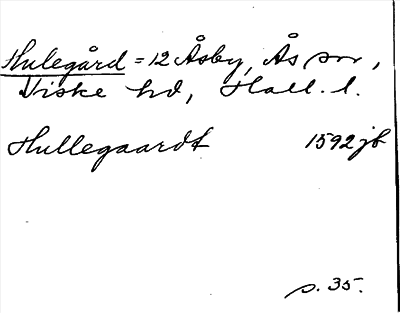 Hulegård = 12 Åsby, Ås sn,
Viske hd, Hall. l.
Hullegaardt 1592 jb
s. 35.